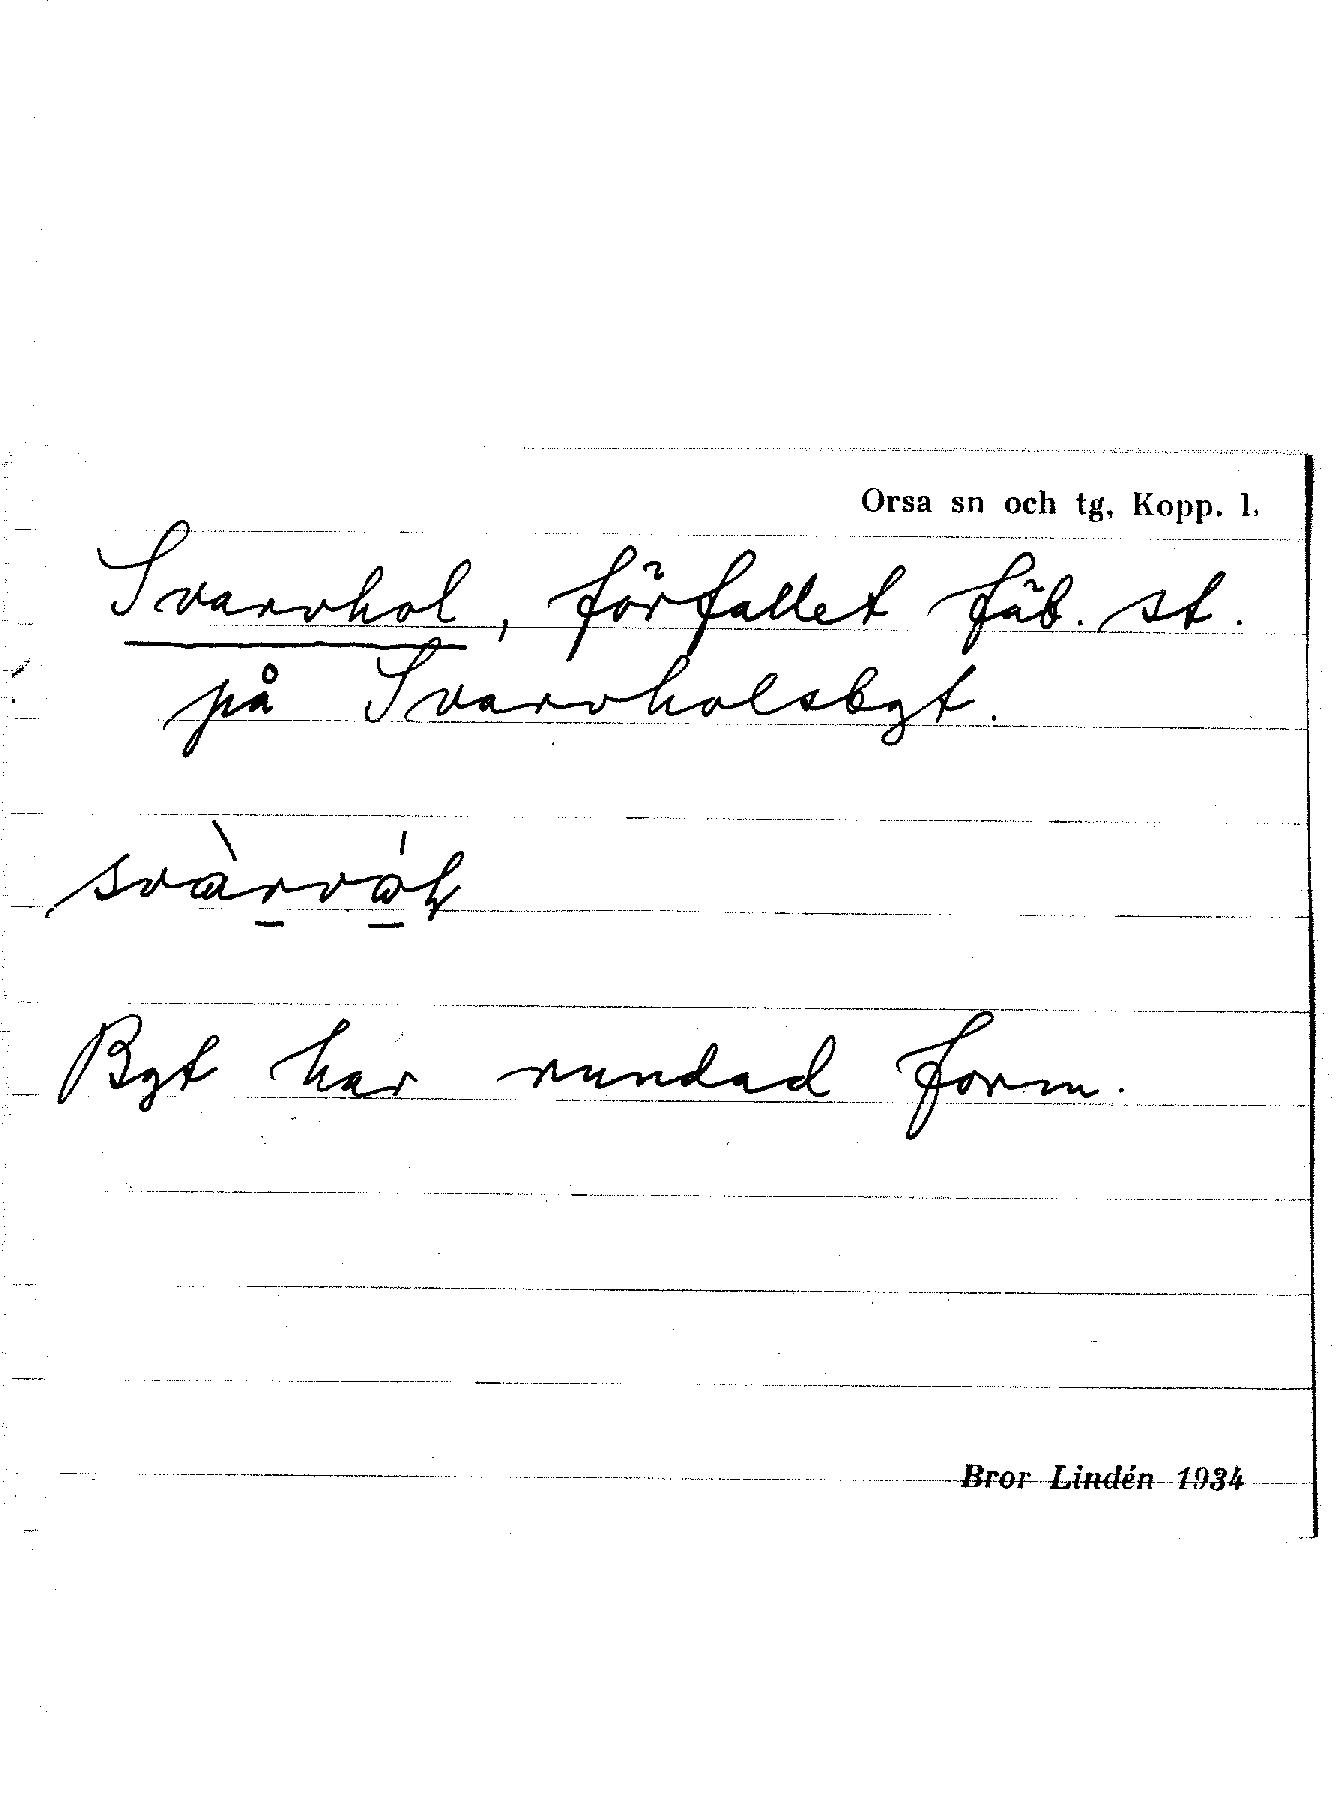 Orsa sn och tg, Kopp. l.
Svarvhol, förfallet fäb. st.
på Svarvholsbgt.
Bgt har rundad form.
Bror Lindén 1934